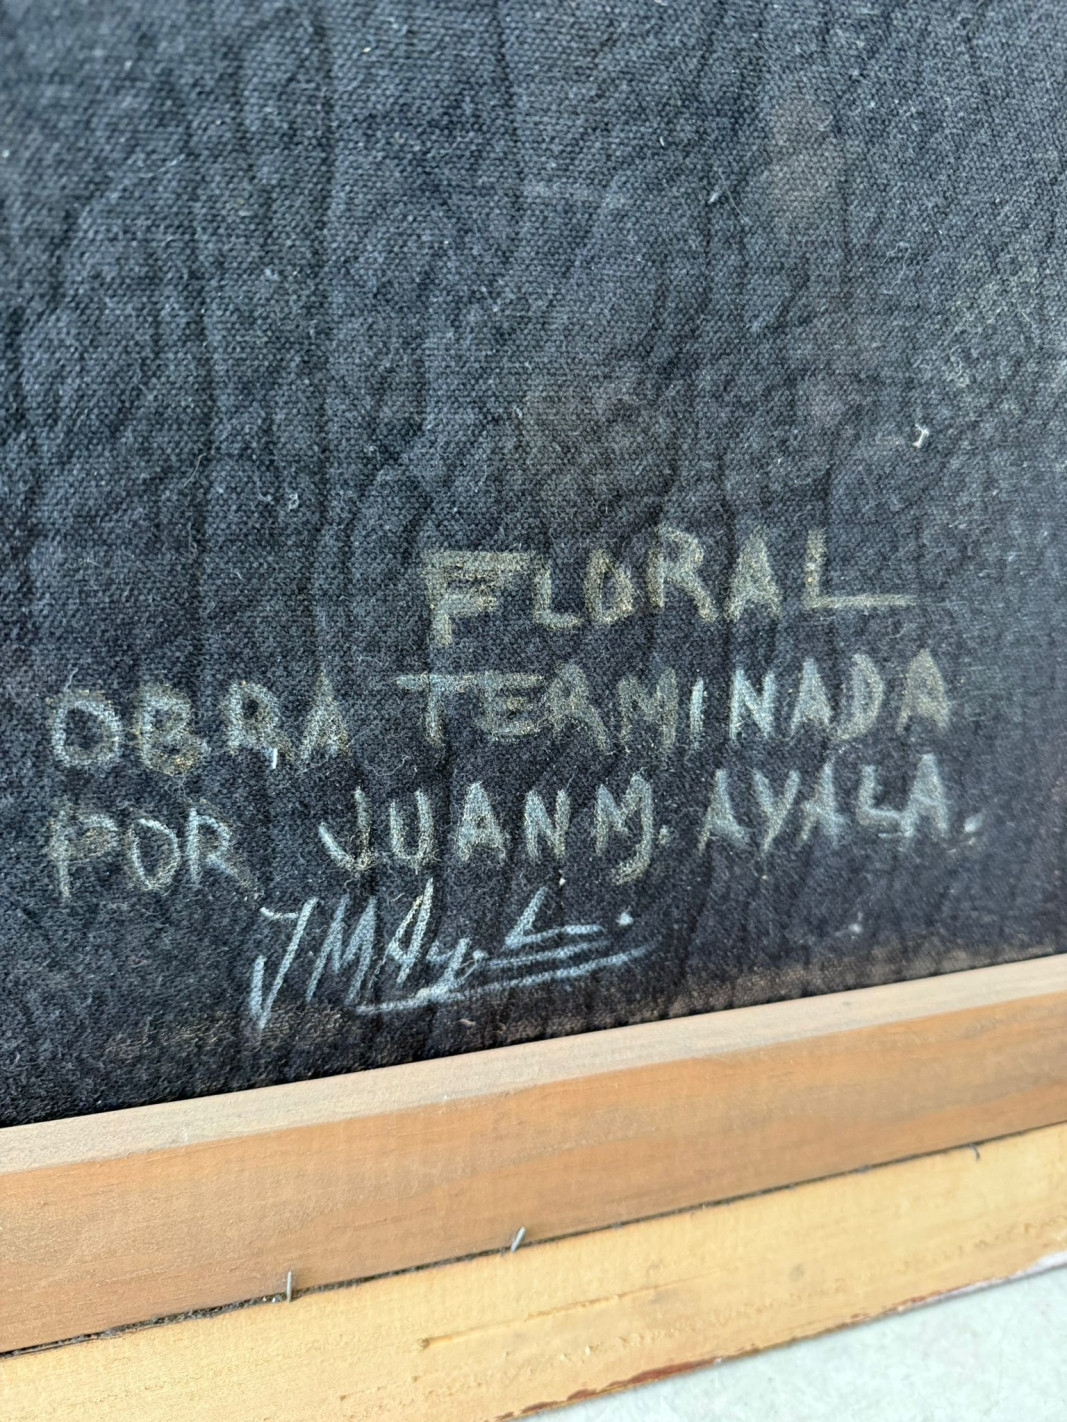 FLORAL
OBRA TERMINADA
POR JUAN M. AYALA.
J.M Ayala.